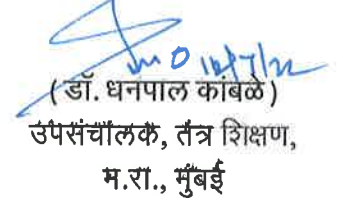 (डॉ. धनपाल कांबळे)
उपसंचालक, तंत्र शिक्षण,
म.रा., मुंबई